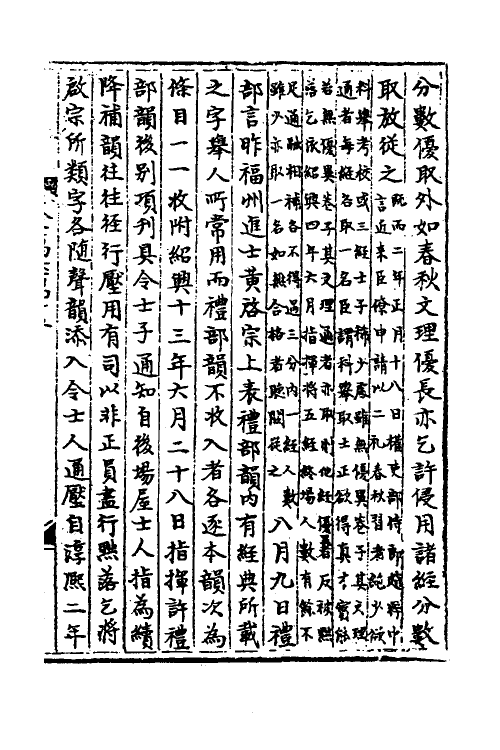 分數優取外如春秋文理優長亦乞許侵用諸經分數
取放從之既而二年正月十八日權吏部侍郎趙粹中
言近來臣僚申請以二禮春秋習者絕少欲
科舉考校或三經士子稀少處雖無優異卷子其文理
通者每經各取一名臣謂科舉取士正欲得真才實能
若無優異卷子其文理通者亦取則他經優者反被黜
落乞依紹興四年六月指揮將五經終場人數有餘不
足通融相補各不得過三分內一經人數
雖少亦取一名如無合格者聽闕從之八月九日禮
部言昨福州進士黃啓宗上表禮部韻內有經典所載
之字舉人所常用而禮部韻不收入者各逐本韻次為
條目一一收附紹興十三年六月二十八日指揮許禮
部韻後別項刋具令士子通知自後塲屋士人指為續
降補韻往往徑行壓用有司以非正員盡行黜落乞將
啟宗所類字各隨聲韻添入令士人通壓自淳熙二年